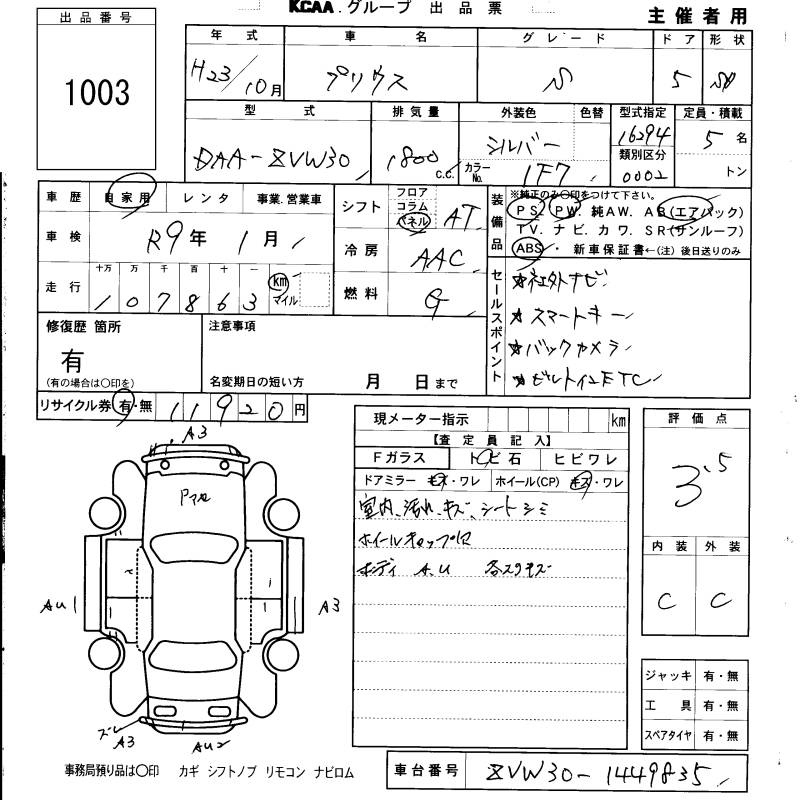 KCAA.グループ 出品票
主催者用
出品番号
1003
年式 車名 グレード ドア 形状
H23/10月 プリウス S 5
型式 排気量 外装色 色替 型式指定 定員・積載
DAA-ZVW30 1800 c.c. シルバー 16294 5名
カラーNo. 1F7 類別区分 0002 トン
車歴 自家用 レンタ 事業.営業車
車検 R9年 1月
走行 十万 万 千 百 十 一
107863 km マイル
シフト フロア コラム パネル AT
冷房 AAC
燃料 G
装備品 ※純正のみ〇印をつけて下さい。
PS. PW. 純AW. AB(エアバック)
TV. ナビ. カワ. SR(サンルーフ)
ABS . 新車保証書←(注)後日送りのみ
セールスポイント
☆社外ナビ
☆スマートキー
☆バックカメラ
☆ビルトインETC
修復歴 箇所
有
(有の場合は〇印を)
注意事項
名変期日の短い方 月 日まで
リサイクル券 有・無 11920円
現メーター指示 km
【査定員記入】
Fガラス トビ石 ヒビワレ
ドアミラー キズ・ワレ ホイール(CP) キズ・ワレ
室内、汚れ、キズ、シートシミ
ホイールキャップ
ボディ A.U 各スリキズ
評価点
3.5
内装 外装
C C
A3
AU1
A3
ズレ
A3
AU2
ジャッキ 有・無
工具 有・無
スペアタイヤ 有・無
事務局預り品は〇印 カギ シフトノブ リモコン ナビロム
車台番号 ZVW30-1449835